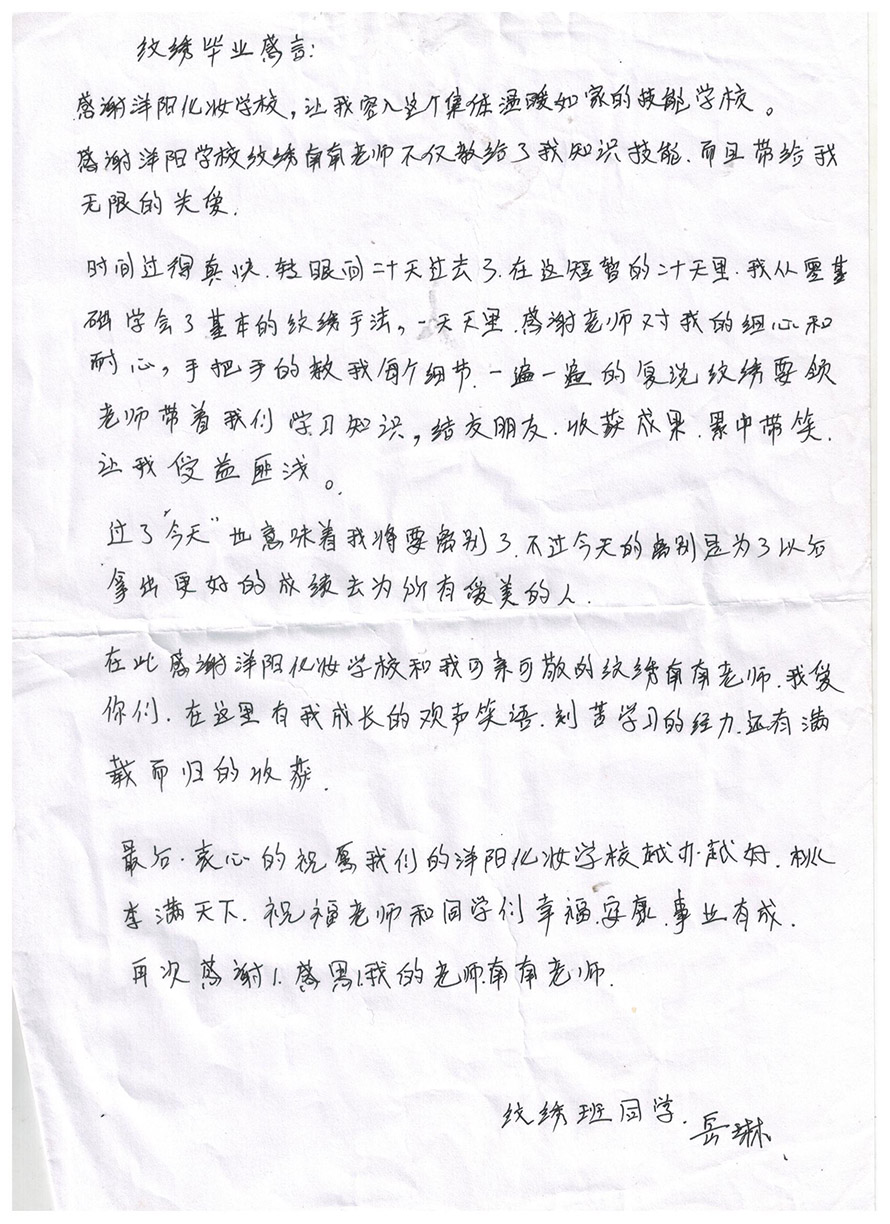 纹绣毕业感言:
感谢洋阳化妆学校,让我容入这个集体温暖如家的技能学校。
感谢洋阳学校纹绣南南老师不仅教给了我知识技能.而且带给我
无限的关爱.
时间过得真快.转眼间二十天过去了.在这短暂的二十天里.我从零基
础学会了基本的纹绣手法,一天天里.感谢老师对我的细心和
耐心,手把手的教我每个细节.一遍一遍的复说纹绣要领
老师带着我们学习知识,结友朋友.收获成果.累中带笑.
让我受益匪浅。
过了"今天"也意味着我将要离别了.不过今天的离别是为了以后
拿出更好的成绩去为所有爱美的人.
在此感谢洋阳化妆学校和我可亲可敬的纹绣南南老师.我爱
你们.在这里有我成长的欢声笑语.刻苦学习的经力.还有满
载而归的收获.
最后.衷心的祝愿我们的洋阳化妆学校越办越好.桃
李满天下.祝福老师和同学们幸福.安康.事业有成.
再次感谢!.感恩!我的老师.南南老师.
纹绣班同学.岳琳